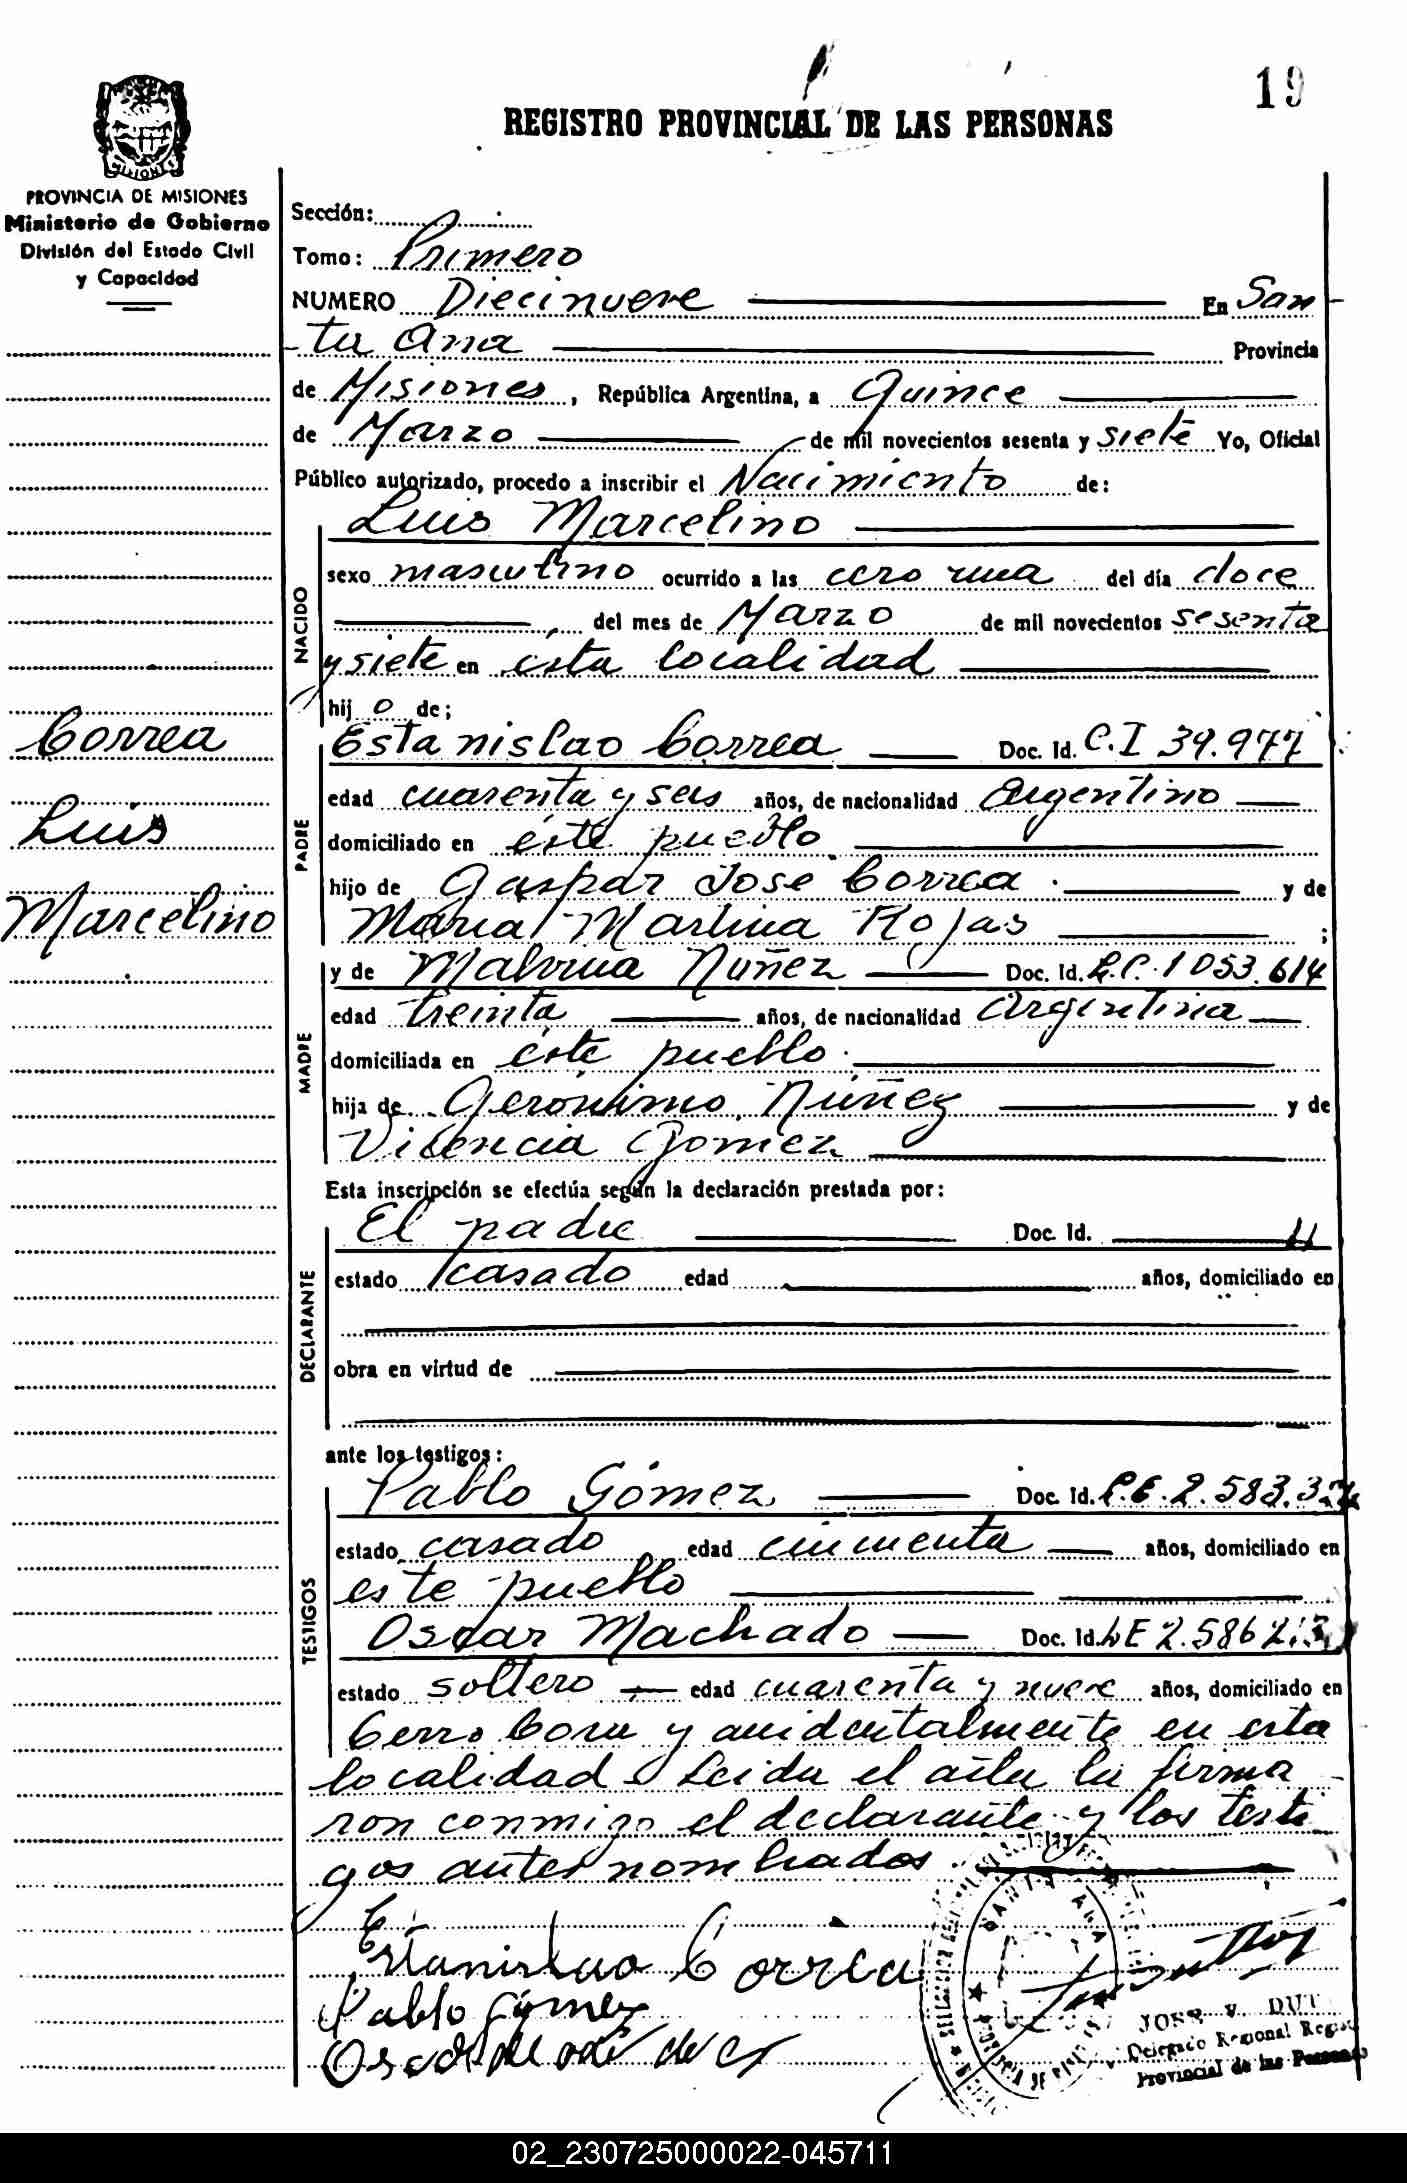 19
REGISTRO PROVINCIAL DE LAS PERSONAS
MISIONES
PROVINCIA DE MISIONES
Ministerio de Gobierno
División del Estado Civil
y Capacidad
Sección:
Tomo: Primero
NUMERO Diecinueve En San
ta Ana Provincia
de Misiones, República Argentina, a Quince
de Marzo de mil novecientos sesenta y siete Yo, Oficial
Público autorizado, procedo a inscribir el Nacimiento de:
Luis Marcelino
NACIDO
sexo masculino ocurrido a las cero una del día doce
del mes de Marzo de mil novecientos sesenta
y siete en esta localidad
hijo de;
Correa
Luis
Marcelino
PADRE
Estanislao Correa Doc. Id. C.I 39.977
edad cuarenta y seis años, de nacionalidad Argentino
domiciliado en éste pueblo
hijo de Gaspar José Correa y de
Maria Martina Rojas ;
MADRE
y de Malvina Nuñez Doc. Id. L.C. 1 053.614
edad treinta años, de nacionalidad Argentina
domiciliada en éste pueblo
hija de Gerónimo Núñez y de
Vicencia Gómez
Esta inscripción se efectúa según la declaración prestada por:
DECLARANTE
El padre Doc. Id.
estado casado edad años, domiciliado en
obra en virtud de
ante los testigos:
TESTIGOS
Pablo Gómez Doc. Id. L.E. 2.583.
estado casado edad cincuenta años, domiciliado en
este pueblo
Oscar Machado Doc. Id. LE 2.586
estado soltero edad cuarenta y nueve años, domiciliado en
Cerro Cora y accidentalmente en esta
localidad Leida el acta la firma
ron conmigo el declarante y los testi
gos antes nombrados
Estanislao Correa
Pablo Gómez
SANTA ANA
JOSE V. DUT
Delegado Regional Regis
Provincial de las Personas
02_230725000022-045711